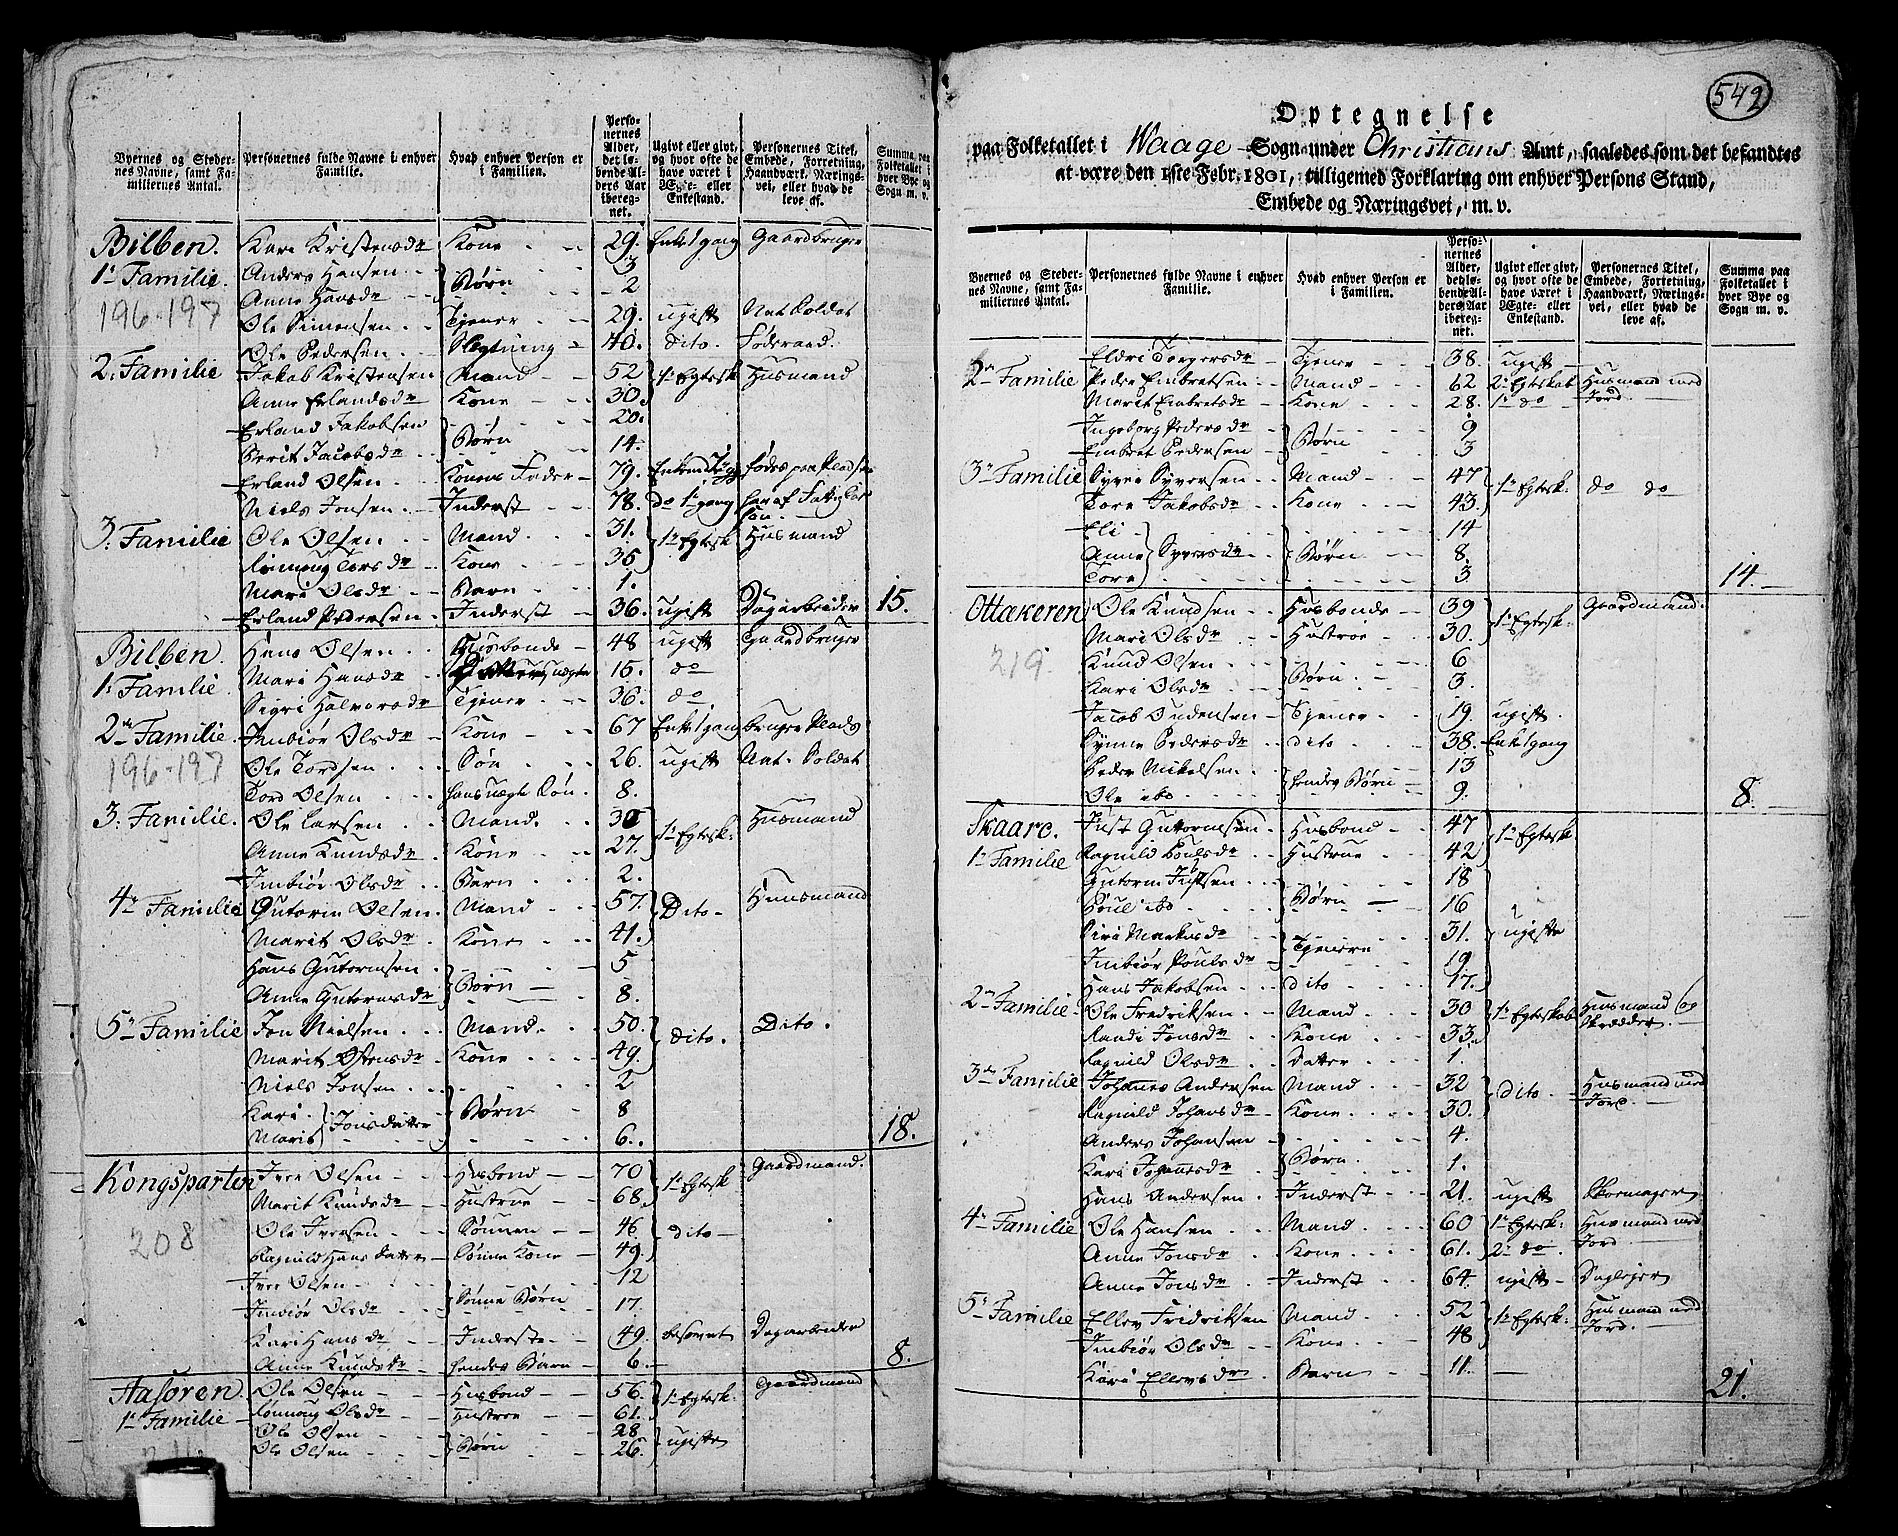 Byernes og Steder-
nes Navne, samt Fa-
miliernes Antal.
Personernes fulde Navne i enhver
Familie.
Hvad enhver Person er
i Familien.
Perso-
nernes
Alder,
det le-
bende Al-
ders Aar
ibereg-
net.
Ugivt eller givt,
og hvor ofte de
have været i
Ægte- eller
Enkestand.
Personernes Titel,
Embede, Forretning,
Haandværk, Nærings-
vei, eller hvad de
leve af.
Summa paa
Folketallet i
hver Bye og
Sogn m. v.
Bilben. Kari Kristensdr Kone 29. Enke 1 gang Gaardbruger
1e Familie. Anders Hansen 3
Anne Hansdr Børn 2
196-197 Ole Simensen Tjener 29. ugift Nat Soldat
Ole Pedersen Slegtning 40. dito. Føderaad.
2. Familie Jakob Kristensen Mand 52 1e Egtesk Husmand
Anne Erlandsdr Kone 30
Erland Jakobsen 20.
Berit Jacobsdr Børn 14.
Erland Olsen Konens Fader 79.
Niels Jonsen Inderst 78. do 1 gang
3. Familie Ole Olsen Mand 31. 1e Egtesk Husmand
Rønnoug Torsdr Kone 35
Mari Olsdr Barn 1.
Erland Pedersen Inderst 36. ugift Dagarbeider 15.
Bilben. Hans Olsen Husbonde 48 ugift Gaardbruger
1e Familie. Mari Hansdr 15. do
Sigri Halvorsdr Tjener 36. do
2den Familie. Imbiør Olsdr Kone 67 Enke 1 gang bruger Plads
196-197 Ole Tordsen Søn 26. ugift Nat. Soldat
Tord Olsen hans uægte Søn 8.
3. Familie. Ole Larsen Mand. 30 1e Egtesk: Husmand
Anne Knudsdr Kone 27.
Imbiør Olsdr Barn 2.
4de Familie Gutorm Olsen Mand 57. Dito Huusmand
Marit Olsdr Kone 41.
Hans Gutormsen 5
Anne Gutormsdr Børn 8.
5te Familie Jon Nielsen Mand. 50. dito. Dito.
Marit Østensdr Kone 49.
Niels Jonsen 2
Kari Jonsdatter Børn 8
Marit 6. 18.
Kongsparten Iver Olsen Husbond 70 1e Egtesk Gaardmand.
Marit Knudsdr Hustrue 68.
208 Ole Iversen Sønnen 46 dito
Ragnild Hansdatter Sønne Kone 49.
Iver Olsen 12
Imbiør Olsdr Sønne Børn 17.
Kari Hansdr Inderste 49. besovet Dagarbeider
Anne Knudsdr hendes Barn 6. 8.
Aasoren. Ole Olsen Husbond 56. 1e Egtesk: Gaardmand
1e Familie Rønnoug Olsdr Hustroe 61.
Ole Olsen 28
Ole Olsen Børn 26. ugifte
542
Optegnelse
paa Folketallet i Waage Sogn under Christians Amt, saaledes som det befandtes
at være den 1ste Febr. 1801, tilligemed Forklaring om enhver Persons Stand,
Embede og Næringsvei, m. v.
Byernes og Steder-
nes Navne, samt Fa-
miliernes Antal.
Personernes fulde Navne i enhver
Familie.
Hvad enhver Person er
i Familien.
Perso-
nernes
Alder,
det le-
bende Al-
ders Aar
ibereg-
net.
Ugivt eller givt,
og hvor ofte de
have været i
Ægte- eller
Enkestand.
Personernes Titel,
Embede, Forretning,
Haandværk, Nærings-
vei, eller hvad de
leve af.
Summa paa
Folketallet i
hver Bye og
Sogn m. v.
Eldri Torgersdr Tjener 38. ugift
2den Familie Peder Embretsen Mand 62 2t Egteskab Husmand med
Marit Embretsdr Kone 28. 1e do Jord
Ingeborg Pedersdr 9
Embret Pedersen Børn 3
3e Familie Syver Syversen Mand 47 1e Egtesk: do do
Tore Jakobsdr Kone 43.
Eli 14
Anne Syversdr Børn 8.
Tore 3 14.
Ottakeren Ole Knudsen Husbonde 39 1e Egtesk: Gaardmand.
Mari Olsdr Hustroe 30.
219. Knud Olsen 6
Kari Olsdr Børn 3.
Jacob Andersen Tjener 19. ugift.
Synne Pedersdr dito 38. Enke 1 gang
Peder Nikelsen 13
Ole ibd hendes Børn 9. 8.
Skaaro. Just Gutormsen Husbond 47 1e Egtesk
1e Familie Ragnild Poulsdr Hustrue 42
Gutorm Justsen 18
Poul ibd Børn 16
Siri Markusdr 31. ugifte
Imbiør Poulsdr Tjenere 19
Hans Jakobsen dito 17.
2den Familie. Ole Fredriksen Mand 30 1e Egteskab Husmand og
Randi Jonsdr Kone 33. Skrædder.
Ragnild Olsdr Datter 1.
3die Familie Johannes Andersen Mand 32 dito Husmand med
Ragnild Johansdr Kone 30. Jord.
Anders Johansen 4.
Kari Johannesdr Børn 1.
Hans Andersen Inderst 21. ugift Skomager
4de Familie Ole Hansen Mand 60 1e Egtesk: Husmand med
Anne Jonsdr Kone 61. 2t do. Jord
Anne Jonsdr Inderst 64. ugift Daglejer
5e Familie Ellev Fridriksen Mand 52 1e Egtesk: Husmand med
Imbiør Olsdr Kone 48 Jord.
Kari Ellevsdr Barn 11. 21.